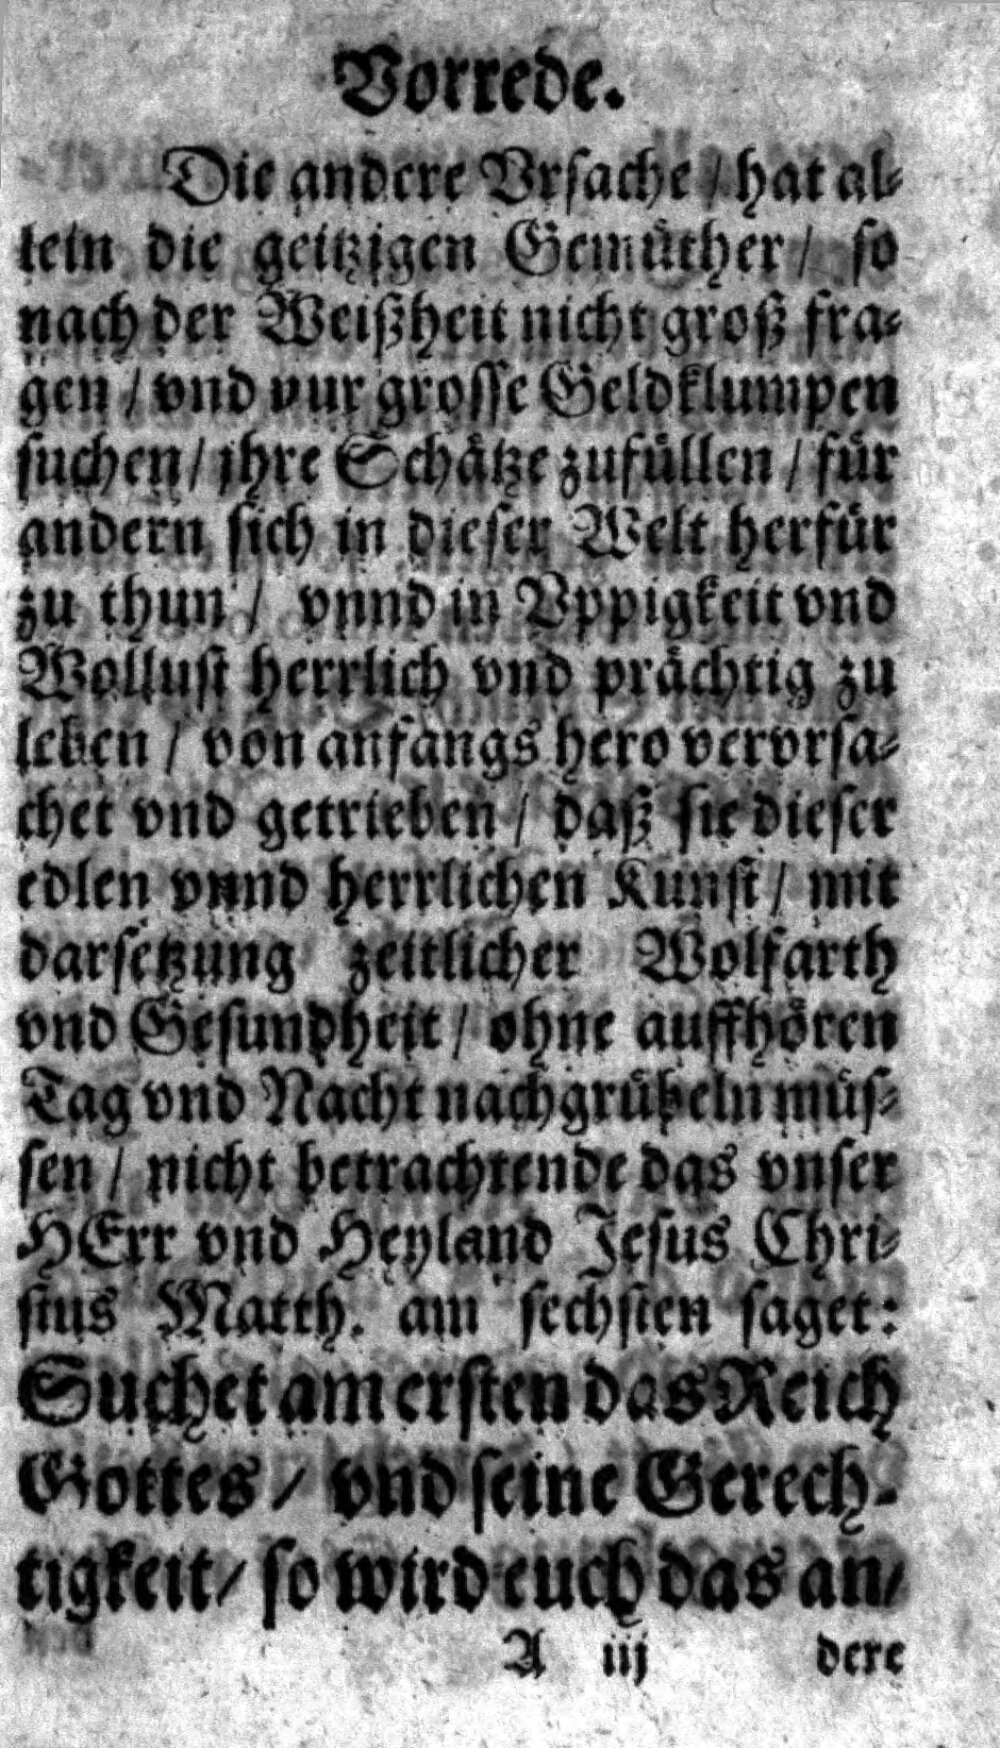 Vorrede.
Die andere Vrsache / hat al-
lein die geitzigen Gemüther / so
nach der Weißheit nicht groß fra-
gen / vnd nur grosse Geldklumpen
suchen / jhre Schätze zufüllen / für
andern sich in dieser Welt herfür
zu thun / vnnd in Vppigkeit vnd
Wollust herrlich vnd prächtig zu
leben / von anfangs hero vervrsa-
chet vnd getrieben / daß sie dieser
edlen vnnd herrlichen Kunst / mit
darsetzung zeitlicher Wolfarth
vnd Gesundheit / ohne auffhören
Tag vnd Nacht nachgrübeln müs-
sen / nicht betrachtende das vnser
HErr vnd Heyland Jesus Chri-
stus Matth. am sechsten saget:
Suchet am ersten das Reich
Gottes / vnd seine Gerech-
tigkeit / so wird euch das an/
A iij dere